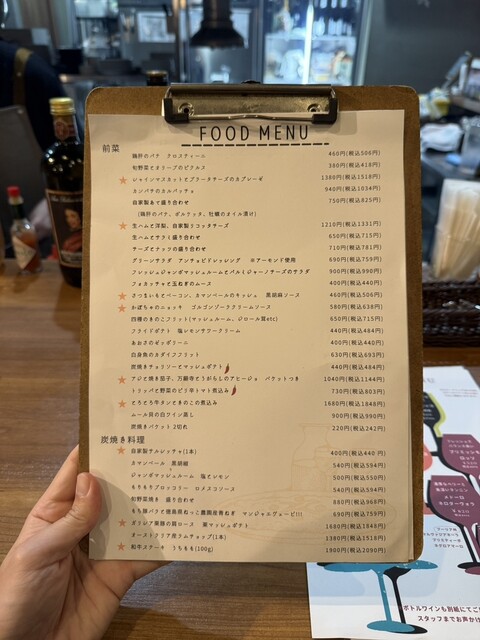 FOOD MENU
前菜
鶏肝のパテ クロスティーニ 460円(税込506円)
旬野菜とオリーブのピクルス 380円(税込418円)
★ シャインマスカットとブラータチーズのカプレーゼ 1380円(税込1518円)
カンパチのカルパッチョ 940円(税込1034円)
自家製ハム盛り合わせ 750円(税込825円)
(鶏肝のパテ、ポルケッタ、牡蠣のオイル漬け)
★ 生ハムと洋梨、自家製リコッタチーズ 1210円(税込1331円)
生ハムとサラミ盛り合わせ 650円(税込715円)
チーズとナッツの盛り合わせ 710円(税込781円)
グリーンサラダ アンチョビドレッシング ※アーモンド使用 690円(税込759円)
フレッシュジャンボマッシュルームとパルミジャーノチーズのサラダ 900円(税込990円)
フォカッチャと玉ねぎのムース 400円(税込440円)
★ さつまいもとベーコン、カマンベールのキッシュ 黒胡麻ソース 460円(税込506円)
★ かぼちゃのニョッキ ゴルゴンゾーラクリームソース 580円(税込638円)
四種のきのこフリット(マッシュルーム、ジロール茸etc) 650円(税込715円)
フライドポテト 塩レモンサワークリーム 440円(税込484円)
あおさのゼッポリーニ 400円(税込440円)
白身魚のカダイフフリット 630円(税込693円)
炭焼きチョリソーとマッシュポテト 440円(税込484円)
★ アジと焼き茄子、万願寺とうがらしのアヒージョ バケットつき 1040円(税込1144円)
トリッパと野菜のピリ辛トマト煮込み 730円(税込803円)
★ とろとろ牛タンときのこの煮込み 1680円(税込1848円)
ムール貝の白ワイン蒸し 900円(税込990円)
炭焼きバケット 2切れ 220円(税込242円)
炭焼き料理
★ 自家製サルシッチャ(1本) 400円(税込440円)
カマンベール 黒胡椒 540円(税込594円)
ジャンボマッシュルーム 塩とレモン 500円(税込550円)
もりもりブロッコリー ロメスコソース 540円(税込594円)
旬野菜焼き 盛り合わせ 880円(税込968円)
もち豚バラと徳島県ねっこ農園産青ねぎ マンジャルヴェーゼ!!! 690円(税込759円)
★ ガリシア栗豚の肩ロース 栗マッシュポテト 1680円(税込1848円)
オーストラリア産ラムチョップ(1本) 1380円(税込1518円)
★ 和牛ステーキ うちもも(100g) 1900円(税込2090円)
ボトルワインも別紙にてご
スタッフまでお声か